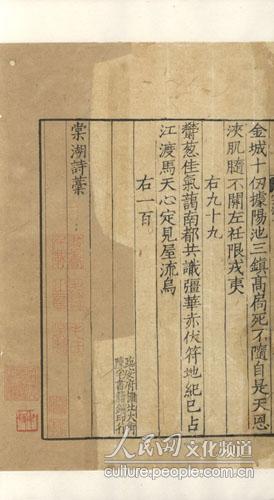 金城十仞據陽池三鎮高扃死不隨自是天恩
浹肌髓不關左衽限戎夷
右九十九
鬱葱佳氣藹南都共識彊華赤伏符地紀已占
江渡馬天心定見屋流烏
右一百
臨安府棚北大街
陳宅書籍鋪印行
棠湖詩藁
人民网 文化频道
culture.people.com.cn